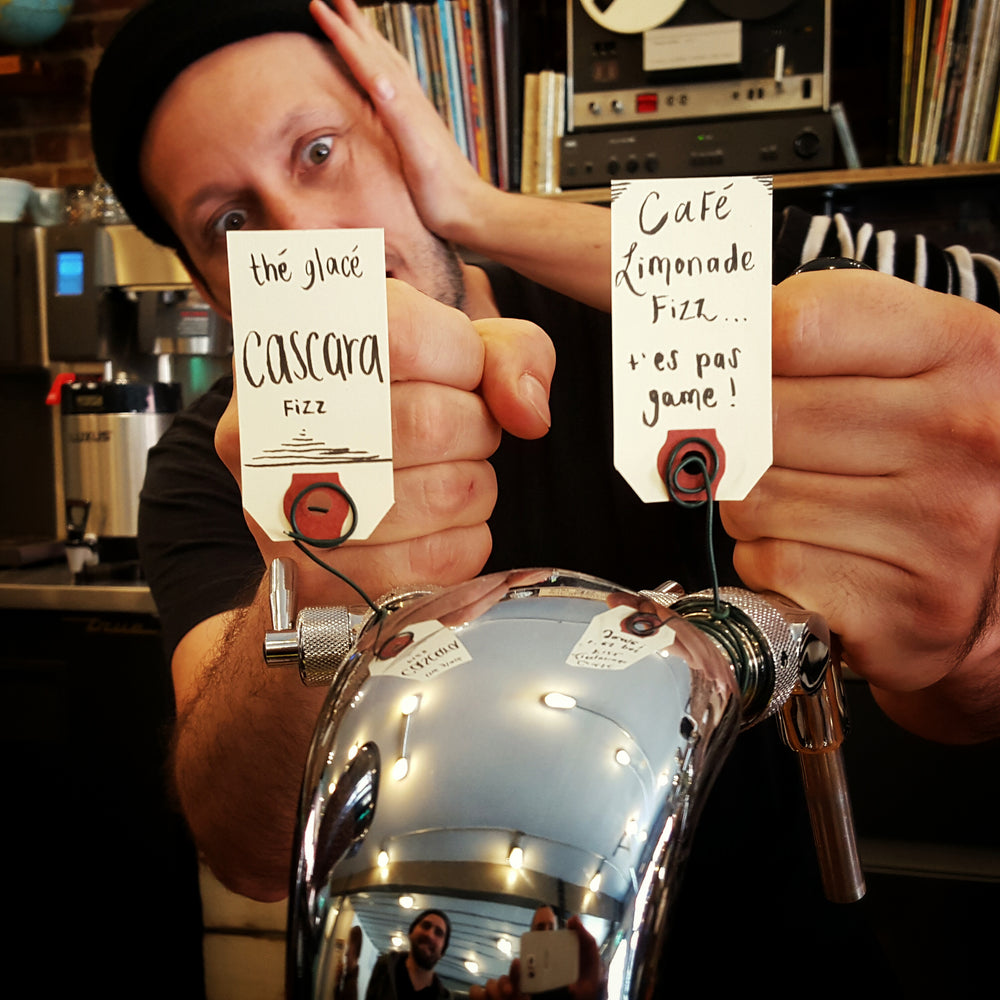 thé glacé
cascara
FIZZ
CaFÉ
Limonade
Fizz...
t'es pas
game !
LUXUS
True